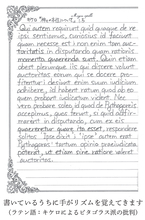 Qui autem requirunt quid quaque de re
ipsi sentiamus, curiosius id faciunt
quam necesse est; non enim tam auc-
toritatis in disputando quam rationis
momenta quaerenda sunt. Quin etiam
obest plerumque iis qui discere volunt
auctoritas eorum qui se docere pro-
fitentur; desinunt enim suum iudicium
adhibere, id habent ratum quod ab eo
quem probant iudicatum vident. Nec
vero probare soleo id quod de Pythagoreis
accepimus, quos ferunt, si quid adfir-
marent in disputando, cum ex eis
quaereretur quare ita esset, respondere
solitos "ipse dixit"; "ipse" autem erat
Pythagoras: tantum opinio praeiudicata
poterat, ut etiam sine ratione valeret
auctoritas.
書いているうちに手がリズムを覚えてきます
(ラテン語:キケロによるピタゴラス派の批判)